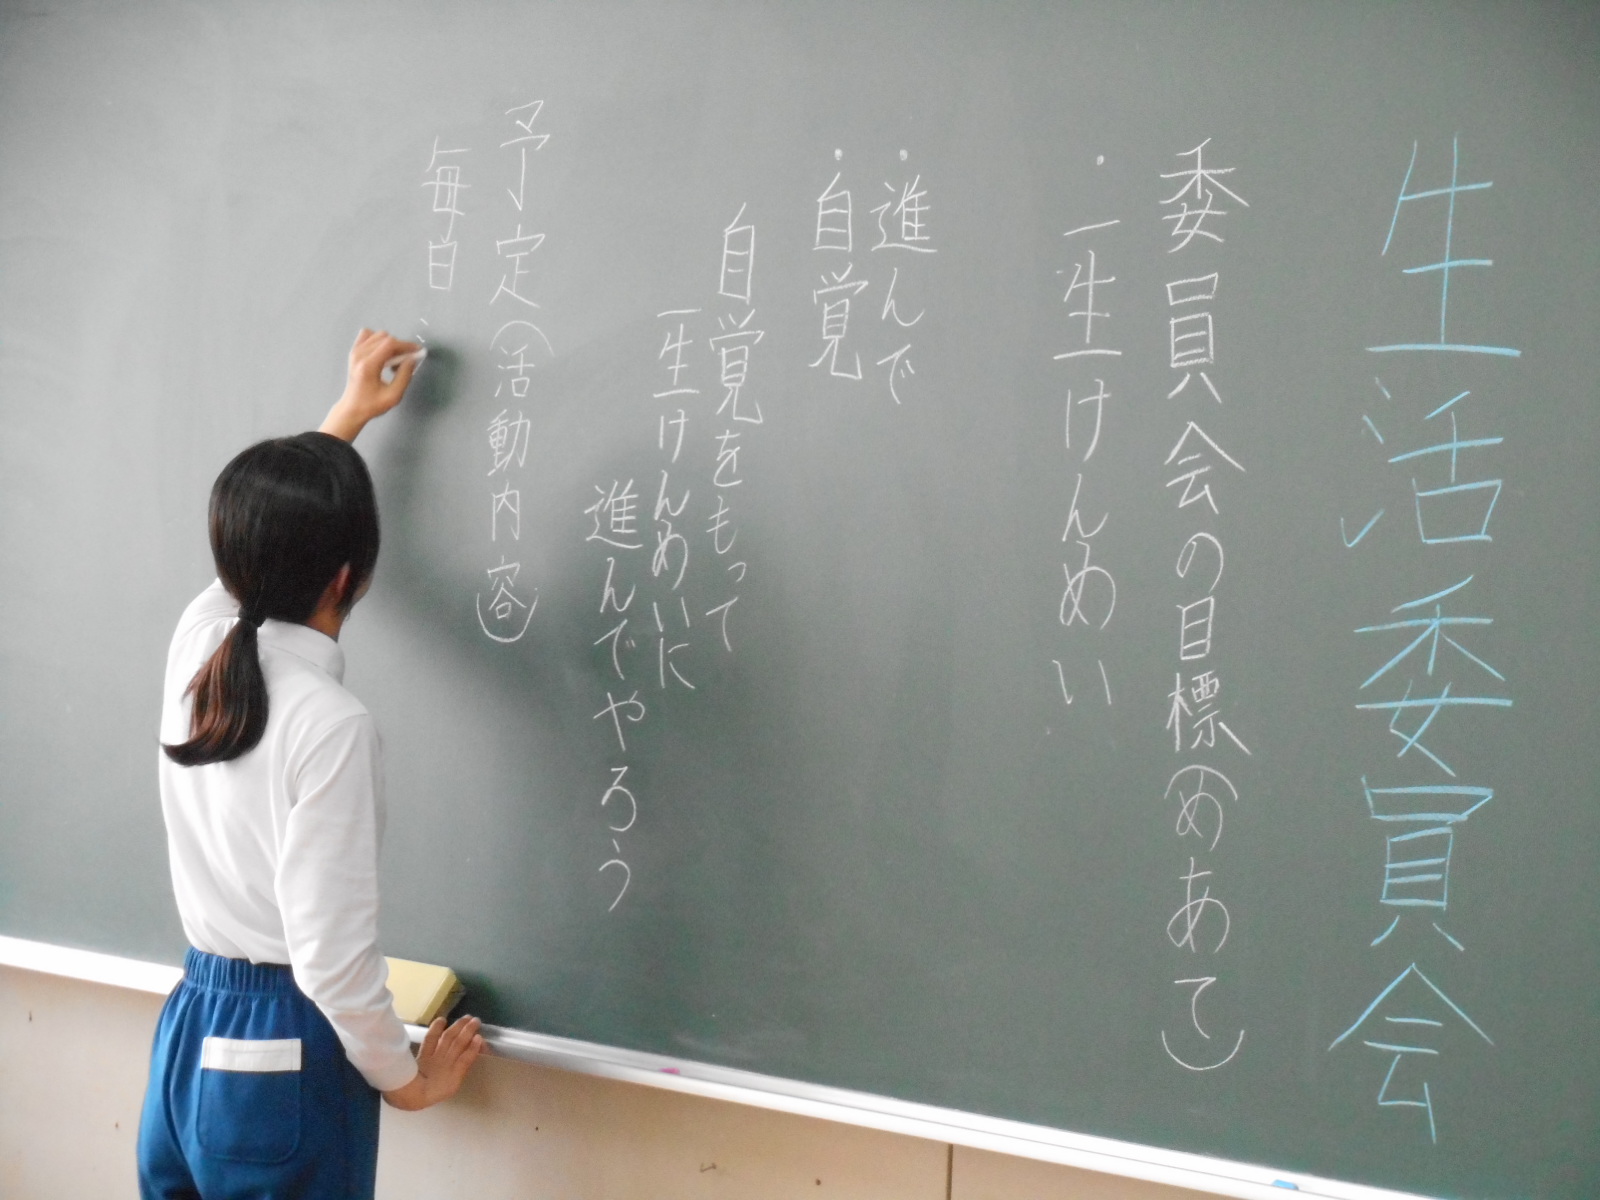 生活委員会
委員会の目標(めあて)
・一生けんめい
・進んで
・自覚
自覚をもって
一生けんめいに
進んでやろう
予定(活動内容)
毎日